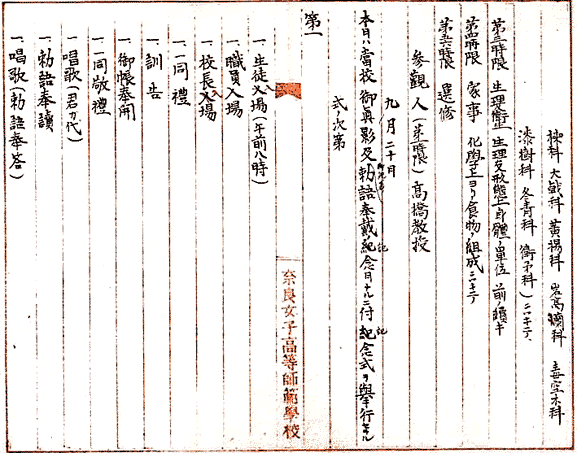 楝科 大戟科 黄楊科 岩高蘭科 毒空木科
漆樹科 冬青科 衛矛科)ニ就テ、
第三時限 生理衛生 生理及形態上身體ノ單位 前ノ續キ
第四時限 家事 化學上ヨリ食物ノ組成ニ就テ
第六時限 選修
参觀人(第一時限)髙橋教授
九月二十日
本日ハ當校 御真影及勅語奉戴紀念日ナルニ付 紀念式ヲ舉行セル
式ノ次第
第一
一、生徒入場(午前八時)
奈良女子高等師範學校
一、職員入場
一、校長入場
一、一同禮
一、訓告
一、御帳奉開
一、一同敬禮
一、唱歌(君ガ代)
一、勅語奉讀
一、唱歌(勅語奉答)